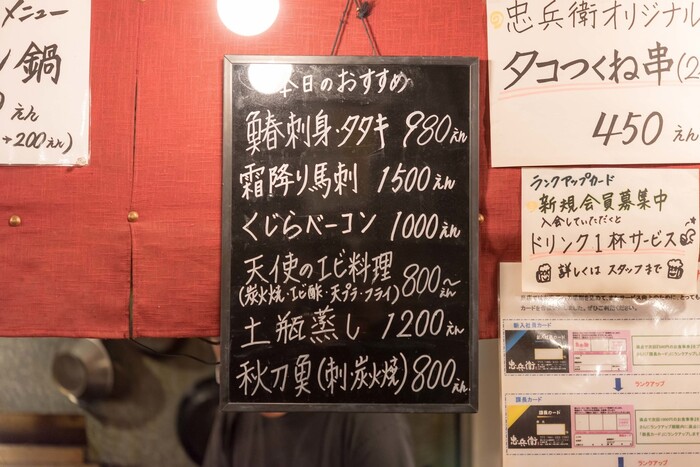 メニュー
鍋
200えん)
本日のおすすめ
鰆刺身・タタキ 980えん
霜降り馬刺 1500えん
くじらベーコン 1000えん
天使のエビ料理 800〜えん
(炭火焼・エビ酢・天プラ・フライ)
土瓶蒸し 1200えん
秋刀魚(刺・炭火焼)800えん
忠兵衛オリジナル
タコつくね串(2
450えん
ランクアップカード
新規会員募集中
入会していただくと
ドリンク1杯サービス
詳しくはスタッフまで
新入社員カード
忠兵衛
ランクアップ
課長カード
忠兵衛
ランクアップ